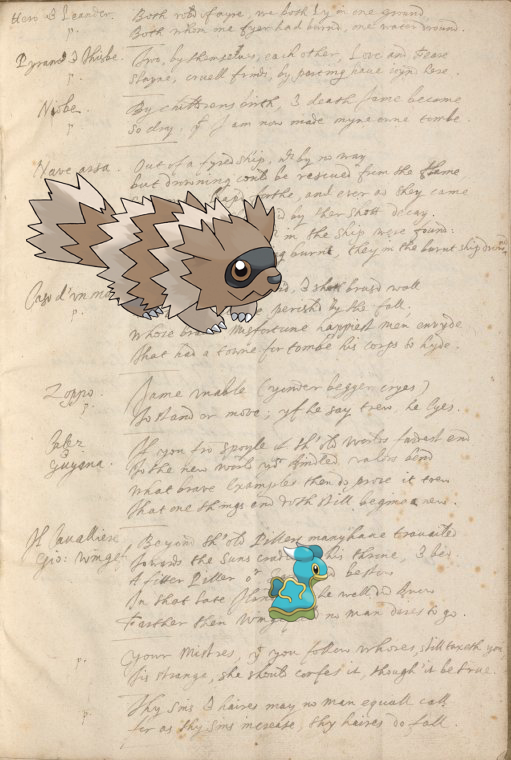 Hero & Leander. Both rob'd of ayre, we both ly in one ground
p. Both whom one fyer had burnd, one water drownd.
Pyramus & Thisbe. Two, by themselves, each other, Love and Feare
p. slayne, cruell frends, by parting have ioyn'd here.
Niobe. By childrens birth, & death I ame become
p. So dry, yt I am now made myne owne tombe.
Nave arsa. Out of a fyred ship, wch by no way
but drowning could be rescued from the flame
and ever as they came
by ther shott decay.
in the ship were found:
burnt, they in the burnt ship drown'd
Caso d'un mu
wall
p. perish'd by his fall,
Whose misfortune happiest men envyde
That had a towne for tombe his corps to hyde.
Zoppo. I ame unable (yonder begger cryes)
p. To stand or move; yf he say trew, he lyes.
Calez & Guyana. If you from spoyle of th'old worlds fardest end
To the new world yr kindled valors bend
What brave examples then do prove it trew
That one things end doth still beginne a new.
Il Cavalliere Gio: Wingef. Beyond th'old Pillers many have travailed
Towards the Suns cradle his throne, & bed.
A fitter Piller
In that late he walk'd
Farther then no man dares to go.
p. Your Mistres, yt you follow whores, still taxeth you
Tis strange, she should confes it, though it be true.
p. Thy sins & haires may no man equall call
for as thy sins increase, thy haires do fall.